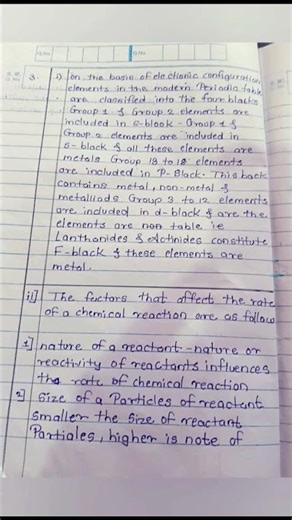 3. i) on the basis of electionic configuration
elements in the modern Periodic table
are classified into the four blocks
Group 1 & Group 2 elements are
included in s-block - Group 1 &
Group 2 elements are included in
s-block & all these elements are
metals Group 13 to 18 elements
are included in P-Block. This back
contains metal, non-metal &
metalliods Group 3 to 12 elements
are included in d-block & are the
elements are non table ie
Lanthanides & Actinides constitute
F-block & these elements are
metal.
ii] The factors that affect the rate
of a chemical reaction are as follow
1] nature of a reactant - nature or
reactivity of reactants influences
the rate of chemical reaction
2] size of a Particles of reactant
smaller the size of reactant
Partiales, higher is note of